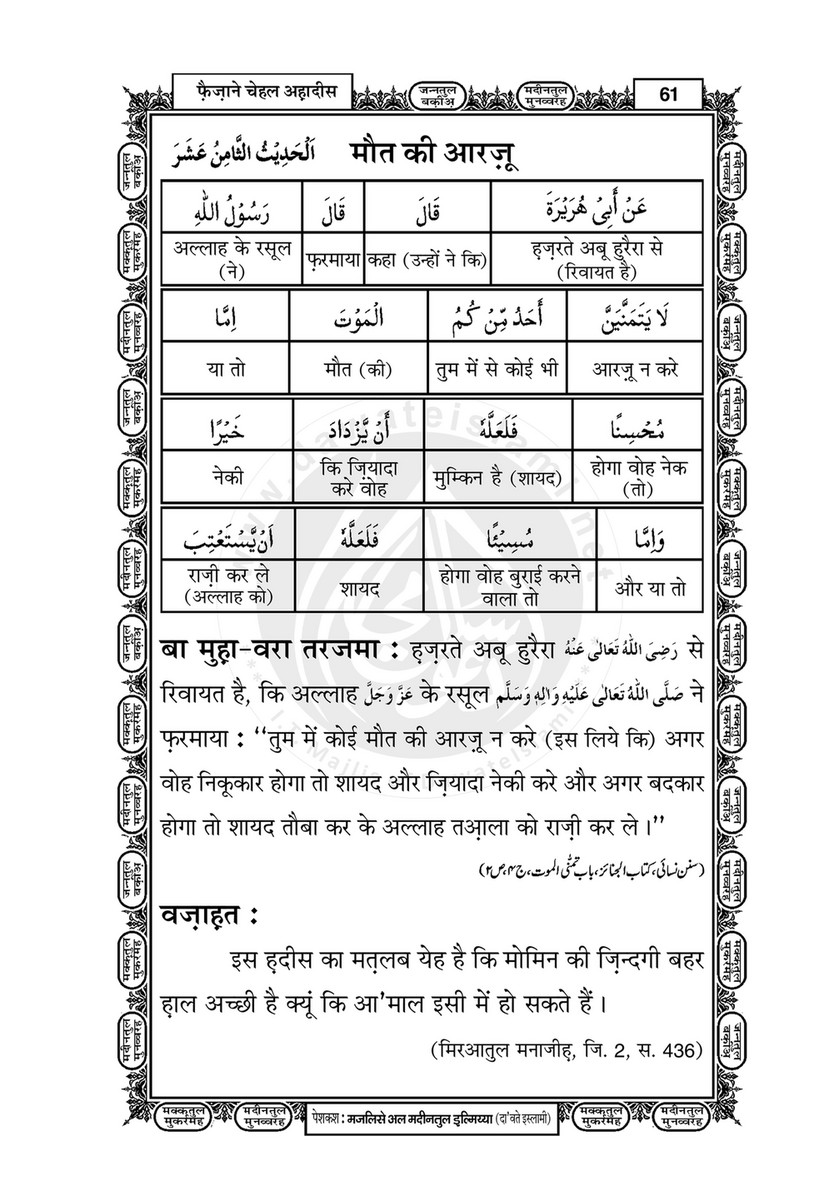 फ़ैज़ाने चेहल अह़ादीस
जन्नतुल बक़ीअ़
मदीनतुल मुनव्वरह
61
اَلْحَدِيْثُ الثَّامِنُ عَشَرَ मौत की आरज़ू
عَنْ أَبِىْ هُرَيْرَةَ قَالَ قَالَ رَسُوْلُ اللهِ
ह़ज़रते अबू हुरैरा से (रिवायत है) कहा (उन्हों ने कि) फ़रमाया अल्लाह के रसूल (ने)
لَا يَتَمَنَّيَنَّ أَحَدُ مِّنْ كُمُ الْمَوْتَ اِمَّا
आरज़ू न करे तुम में से कोई भी मौत (की) या तो
مُحْسِنًا فَلَعَلَّهٗ أَنْ يَّزْدَادَ خَيْرًا
होगा वोह नेक (तो) मुम्किन है (शायद) कि ज़ियादा करे वोह नेकी
وَاِمَّا مُسِيْئًا فَلَعَلَّهٗ اَنْ يَّسْتَعْتِبَ
और या तो होगा वोह बुराई करने वाला तो शायद राज़ी कर ले (अल्लाह को)
बा मुह़ा-वरा तरजमा : ह़ज़रते अबू हुरैरा رَضِىَ اللهُ تَعَالٰى عَنْهُ से
रिवायत है, कि अल्लाह عَزَّ وَجَلَّ के रसूल صَلَّى اللهُ تَعَالٰى عَلَيْهِ وَاٰلِهٖ وَسَلَّم ने
फ़रमाया : ‘‘तुम में कोई मौत की आरज़ू न करे (इस लिये कि) अगर
वोह निकूकार होगा तो शायद और ज़ियादा नेकी करे और अगर बदकार
होगा तो शायद तौबा कर के अल्लाह तआ़ला को राज़ी कर ले ।’’
(سنن نسائی، کتاب الجنائز، باب تمنّی الموت، ج۴،ص۲)
वज़ाह़त :
इस ह़दीस का मत़लब येह है कि मोमिन की ज़िन्दगी बहर
ह़ाल अच्छी है क्यूं कि आ’माल इसी में हो सकते हैं ।
(मिरआतुल मनाजीह़, जि. 2, स. 436)
मक्कतुल मुकर्रमह
मदीनतुल मुनव्वरह
पेशकश : मजलिसे अल मदीनतुल इ़ल्मिय्या (दा’वते इस्लामी)
मक्कतुल मुकर्रमह
मदीनतुल मुनव्वरह